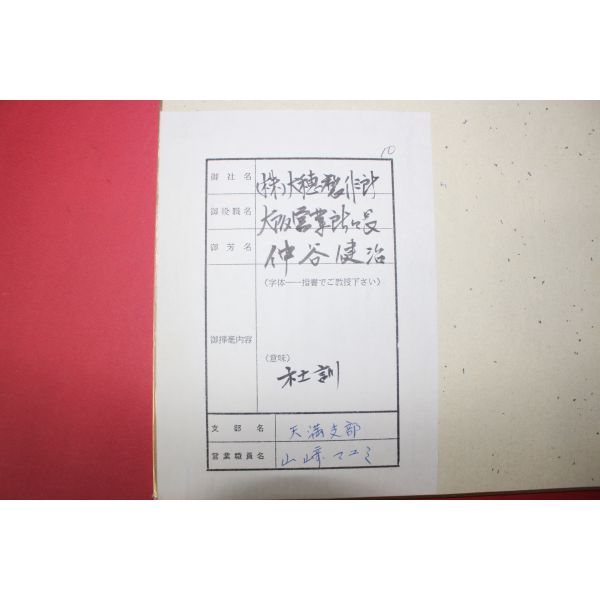 10
御社名 (株)大穂製作所
御役職名 大阪営業所所長
御芳名 仲谷健治
(字体一楷書でご教授下さい)
御揮毫内容
(意味)
社訓
支部名 天満支部
営業職員名 山崎マユミ